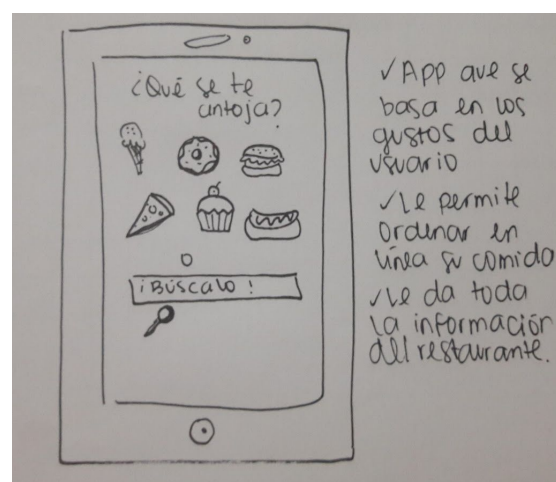 ¿Qué se te
antoja?
o
¡Búscalo!
✓App que se
basa en los
gustos del
usuario
✓Le permite
ordenar en
línea su comida
✓Le da toda
la información
del restaurante.